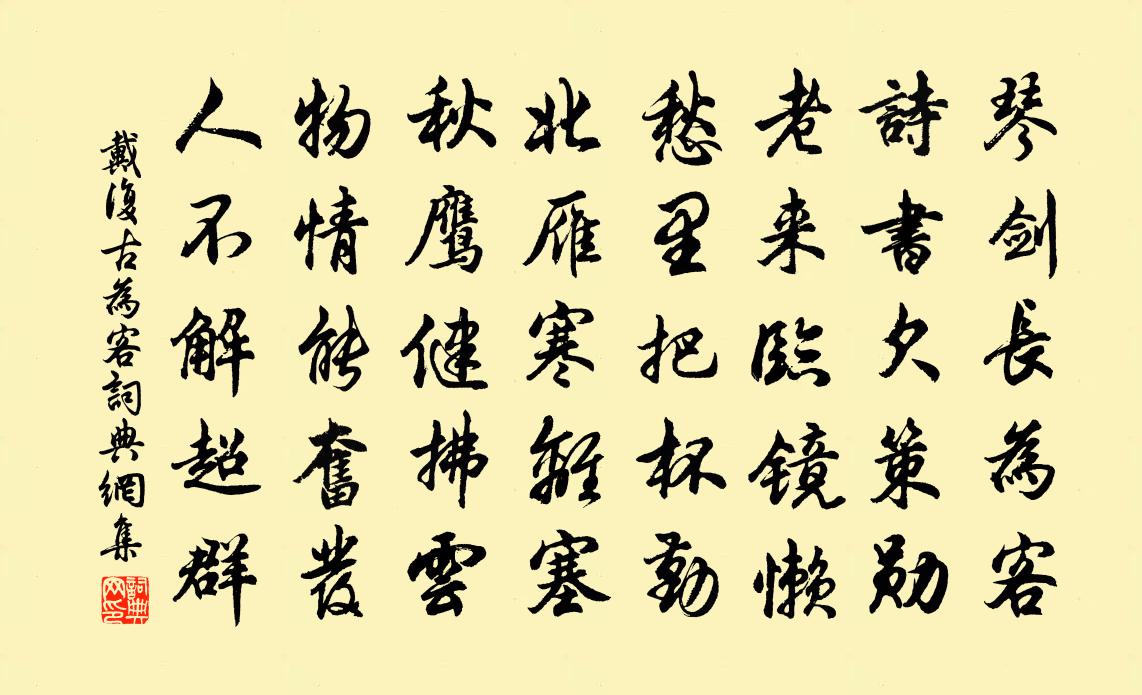 琴剑長為客
詩書欠策勋
老来臨镜懒
愁里把杯勤
北雁寒離塞
秋鹰健拂雲
物情能奮發
人不解超群
戴復古為客詞典網集
詞典网印